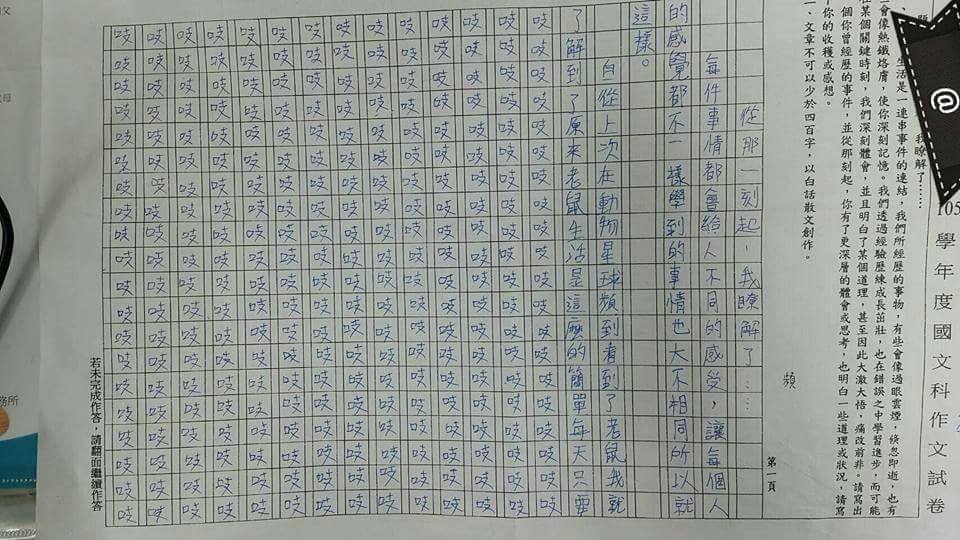 105學年度國文科作文試卷
我瞭解了……
生活是一連串事件的連結，我們所經歷的事物，有些會像過眼雲煙，倏忽即逝，也有
會像熱鐵烙膚，使你深刻記憶。我們透過經驗歷練成長茁壯，也在錯誤之中學習進步，而可能
在某個關鍵時刻，我們深刻體會，並且明白了某個道理，甚至因此大澈大悟，痛改前非。請寫出
個你曾經歷的事件，並從那刻起，你有了更深層的體會或思考，也明白一些道理或狀況，請寫
下你的收穫或感想。
、文章不可以少於四百字，以白話散文創作。
頻
第一頁
從那一刻起，我瞭解了……
每件事情都會給人不同的感受，讓每個人
的感覺都不一樣學到的事情也大不相同所以就
這樣。
自從上次在動物星球頻到看到了老鼠我就
了解到了原來老鼠生活是這麼的簡單每天只需
吱吱吱吱吱吱吱吱吱吱吱吱吱吱吱吱吱吱吱吱
吱吱吱吱吱吱吱吱吱吱吱吱吱吱吱吱吱吱吱吱
吱吱吱吱吱吱吱吱吱吱吱吱吱吱吱吱吱吱吱吱
吱吱吱吱吱吱吱吱吱吱吱吱吱吱吱吱吱吱吱吱
吱吱吱吱吱吱吱吱吱吱吱吱吱吱吱吱吱吱吱吱
吱吱吱吱吱吱吱吱吱吱吱吱吱吱吱吱吱吱吱吱
吱吱吱吱吱吱吱吱吱吱吱吱吱吱吱吱吱吱吱吱
吱吱吱吱吱吱吱吱吱吱吱吱吱吱吱吱吱吱吱吱
吱吱吱吱吱吱吱吱吱吱吱吱吱吱吱吱吱吱吱吱
吱吱吱吱吱吱吱吱吱吱吱吱吱吱吱吱吱吱吱吱
吱吱吱吱吱吱吱吱吱吱吱吱吱吱吱吱吱吱吱吱
吱吱吱吱吱吱吱吱吱吱吱吱吱吱吱吱吱吱吱吱
吱吱吱吱吱吱吱吱吱吱吱吱吱吱吱吱吱吱吱吱
吱吱吱吱吱吱吱吱吱吱吱吱吱吱吱吱吱吱吱吱
若未完成作答，請翻面繼續作答
務所